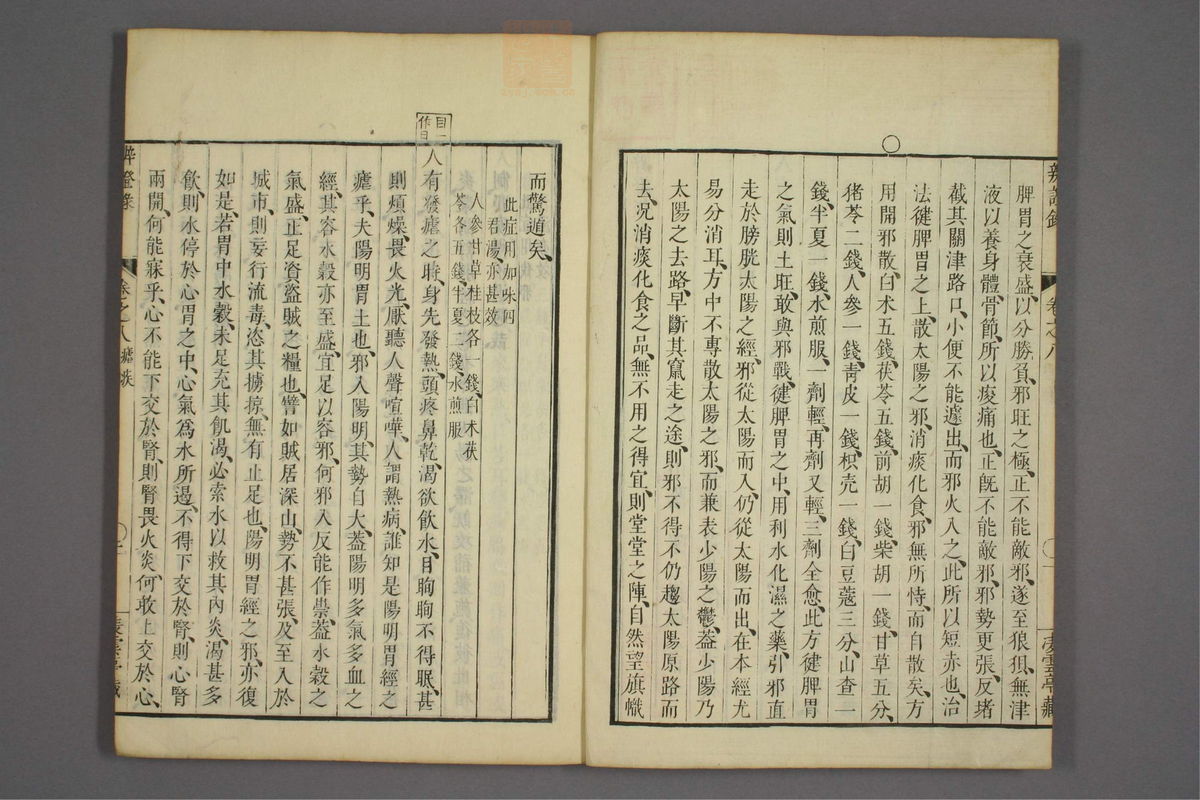 辨證錄 卷之八 凌雲亭藏
脾胃之衰盛、以分勝負、邪旺之極、正不能敵邪、遂至狼狽、無津
液以養身體、骨節、所以痠痛也、正旣不能敵邪、邪勢更張、反堵
截其關津路口、小便不能遽出、而邪火入之、此所以短赤也、治
法健脾胃之土、散太陽之邪、消痰化食、邪無所恃、而自散矣、方
用開邪散、白朮五錢、茯苓五錢、前胡一錢、柴胡一錢、甘草五分、
猪苓二錢、人參一錢、靑皮一錢、枳壳一錢、白豆蔻三分、山查一
錢、半夏一錢、水煎服、一劑輕、再劑又輕、三劑全愈、此方健脾胃
之氣、則土旺、敢與邪戰、健脾胃之中、用利水化濕之藥、引邪直
走於膀胱太陽之經、邪從太陽而入、仍從太陽而出、在本經尤
易分消耳、方中不專散太陽之邪、而兼表少陽之鬱、葢少陽乃
太陽之去路、早斷其竄走之途、則邪不得不仍趨太陽原路而
去、况消痰化食之品、無不用之得宜、則堂堂之陣、自然望旗幟
而驚遁矣、
此症用加味四
君湯亦甚效
人參甘草桂枝各一錢、白朮茯
苓各五錢、半夏二錢、水煎服
目一
作日
人有發瘧之時、身先發熱、頭疼鼻乾、渴欲飮水、目眴眴不得眠、甚
則煩燥、畏火光、厭聽人聲喧嘩、人謂熱病、誰知是陽明胃經之
瘧乎、夫陽明胃土也、邪入陽明、其勢自大、葢陽明多氣多血之
經、其容水穀亦至盛、宜足以容邪、何邪入反能作祟、葢水穀之
氣盛、正足資盜賊之糧也、譬如賊居深山、勢不甚張、及至入於
城市、則妄行流毒、恣其擄掠、無有止足也、陽明胃經之邪、亦復
如是、若胃中水穀、未足充其飢渴、必索水以救其內炎、渴甚多
飮、則水停於心胃之中、心氣爲水所遏、不得下交於腎、則心腎
兩開、何能寐乎、心不能下交於腎、則腎畏火炎、何敢上交於心、
卷之八 瘧疾